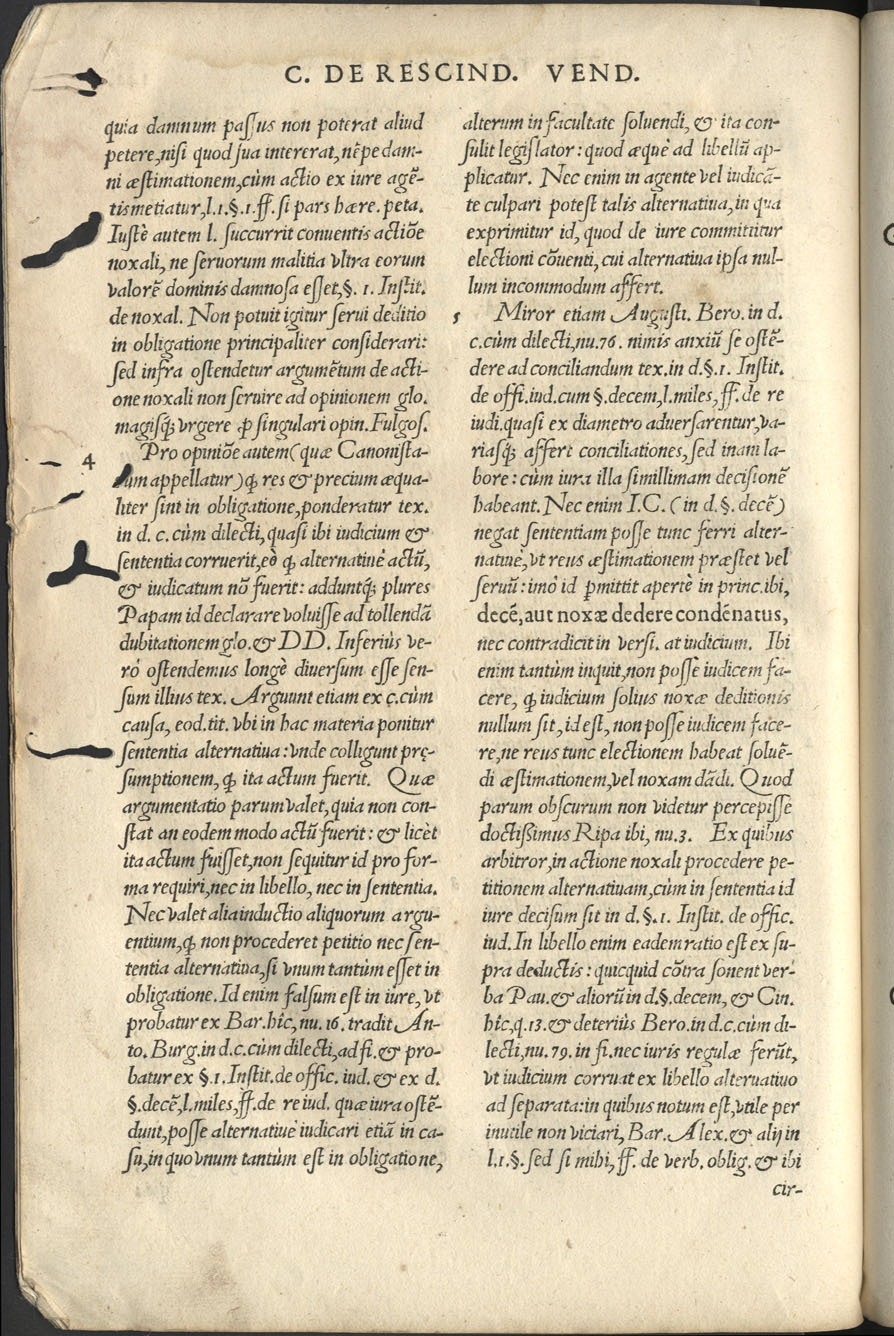 C. DE RESCIND. VEND.
quia damnum passus non poterat aliud
petere, nisi quod sua intererat, nẽpe dam-
ni æstimationem, cùm actio ex iure agẽ-
tis metiatur, l.1.§.1.ff. si pars hære. peta.
Iustè autem l. succurrit conuentis actiõe
noxali, ne seruorum malitia vltra eorum
valorẽ dominis damnosa esset, §. 1. Instit.
de noxal. Non potuit igitur serui deditio
in obligatione principaliter considerari:
sed infra ostendetur argumẽtum de acti-
one noxali non seruire ad opinionem glo.
magisq́; vrgere ꝓ singulari opin. Fulgos.
4 Pro opiniõe autem (quæ Canonista-
rum appellatur) ꝙ res & precium æqua-
liter sint in obligatione, ponderatur tex.
in d. c. cùm dilecti, quasi ibi iudicium &
sententia corruerit, eò ꝙ alternatiuè actũ,
& iudicatum nõ fuerit: adduntq́; plures
Papam id declarare voluisse ad tollendã
dubitationem glo. & DD. Inferiùs ve-
rò ostendemus longè diuersum esse sen-
sum illius tex. Arguunt etiam ex c. cùm
causa, eod. tit. vbi in hac materia ponitur
sententia alternatiua: vnde colligunt pręsumptionem, ꝙ ita actum fuerit. Quæ
argumentatio parum valet, quia non con-
stat an eodem modo actũ fuerit: & licèt
ita actum fuisset, non sequitur id pro for-
ma requiri, nec in libello, nec in sententia.
Nec valet alia inductio aliquorum argu-
entium, ꝙ non procederet petitio nec sen-
tentia alternatiua, si vnum tantùm esset in
obligatione. Id enim falsum est in iure, vt
probatur ex Bar. hîc, nu. 16. tradit An-
to. Burg. in d. c. cùm dilecti, ad fi. & pro-
batur ex §.1. Instit. de offic. iud. & ex d.
§. decẽ, l. miles, ff. de re iud. quæ iura ostẽ-
dunt, posse alternatiuè iudicari etiã in ca-
su, in quo vnum tantùm est in obligatione,
alterum in facultate soluendi, & ita con-
sulit legislator: quod æquè ad libellũ ap-
plicatur. Nec enim in agente vel iudicã-
te culpari potest talis alternatiua, in qua
exprimitur id, quod de iure committitur
electioni cõuenti, cui alternatiua ipsa nul-
lum incommodum affert.
5 Miror etiam Augusti. Bero. in d.
c. cùm dilecti, nu. 76. nimis anxiũ se ostẽ-
dere ad conciliandum tex. in d. §.1. Instit.
de offi. iud. cum §. decem, l. miles, ff. de re
iudi. quasi ex diametro aduersarentur, va-
riasq́; affert conciliationes, sed inani la-
bore: cùm iura illa simillimam decisionẽ
habeant. Nec enim I.C. (in d. §. decẽ)
negat sententiam posse tunc ferri alter-
natiuè, vt reus æstimationem præstet vel
seruũ: imò id ꝑmittit apertè in princ. ibi,
decẽ, aut noxæ dedere condẽnatus,
nec contradicit in versi. at iudicium. Ibi
enim tantùm inquit, non posse iudicem fa-
cere, ꝙ iudicium solius noxæ deditionis
nullum sit, id est, non posse iudicem face-
re, ne reus tunc electionem habeat soluẽ-
di æstimationem, vel noxam dãdi. Quod
parum obscurum non videtur percepisse
doctißimus Ripa ibi, nu. 3. Ex quibus
arbitror, in actione noxali procedere pe-
titionem alternatiuam, cùm in sententia id
iure decisum sit in d. §.1. Instit. de offic.
iud. In libello enim eadem ratio est ex su-
pra deductis: quicquid cõtra sonent ver-
ba Pau. & aliorũ in d. §. decem, & Cin.
hîc, q. 13. & deteriùs Bero. in d. c. cùm di-
lecti, nu. 79. in fi. nec iuris regulæ ferũt,
vt iudicium corruat ex libello alternatiuo
ad separata: in quibus notum est, vtile per
inutile non viciari, Bar. Alex. & alij in
l.1.§. sed si mihi, ff. de verb. oblig. & ibi
cir-